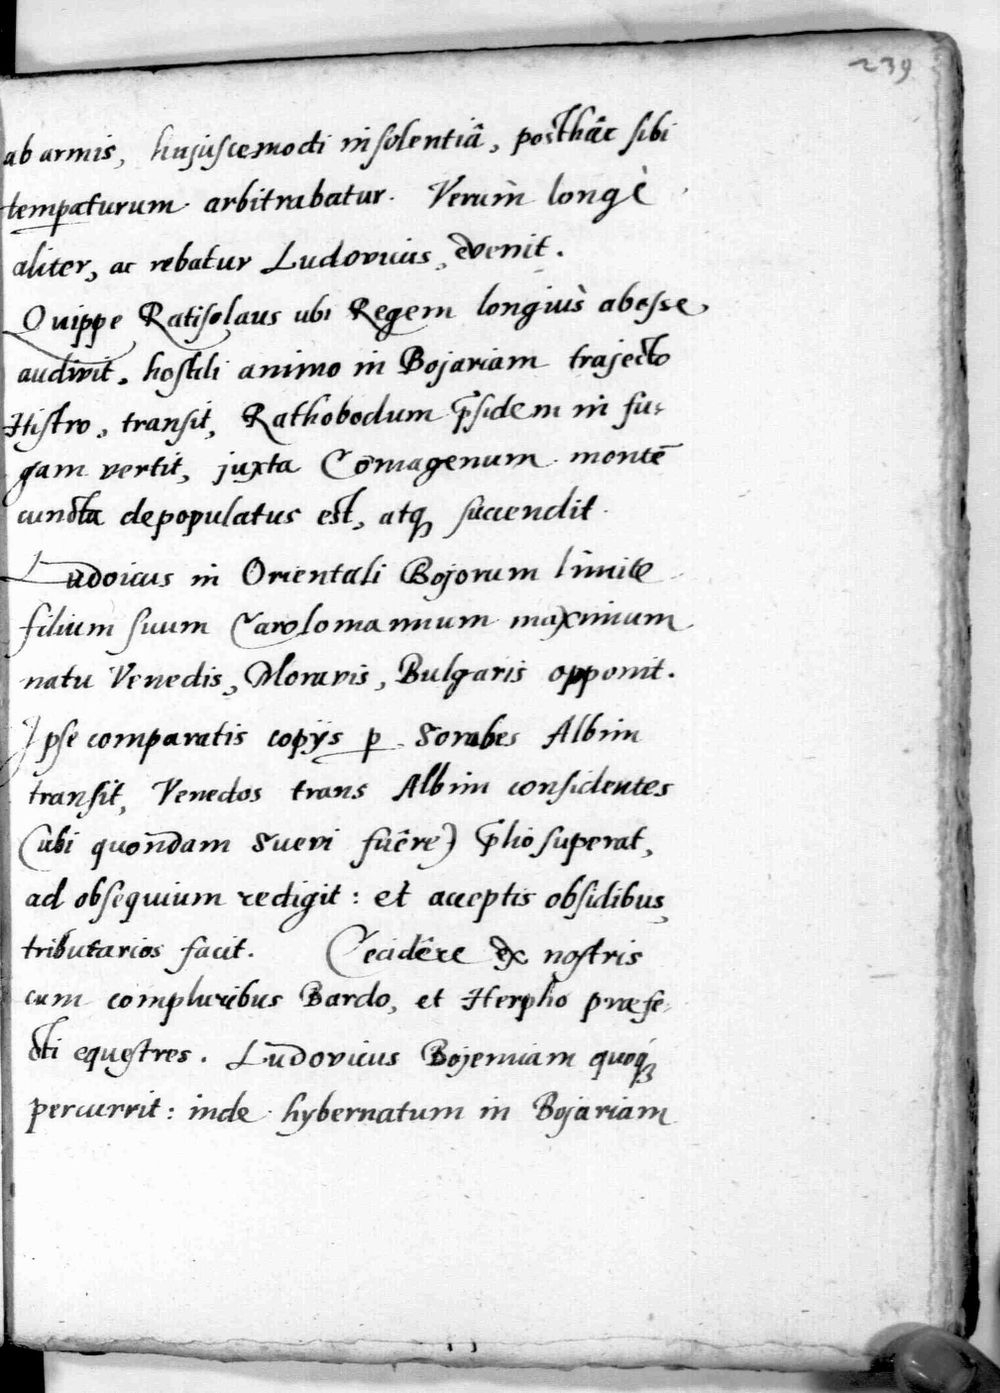 239
ab armis, hujuscemodi insolentiâ, posthâc sibi
tempaturum arbitrabatur. Verùm longè
aliter, ac rebatur Ludovicus, evenit.
Quippe Ratisolaus ubi Regem longiùs abesse,
audivit, hostili animo in Bojariam trajecto
Histro, transit, Rathobodum p̄sidem in fu-
gam vertit, juxta Cōmagenum montē
cuncta depopulatus est, atq; succendit.
Ludoicus in Orientali Bojorum limite
filium suum Carolomannum maximum
natu Venedis, Moravis, Bulgaris opponit.
Ipse comparatis copijs p Sorabes Albim
transit, Venedos trans Albim considentes
(ubi quondam Suevi fuêre) p̄lio superat,
ad obsequium redigit: et acceptis obsidibus,
tributarios facit. Cecidêre ex nostris
cum compluribus Bardo, et Herpho præfe-
cti equestres. Ludovicus Bojemiam quoq;
percurrit: inde hybernatum in Bojariam